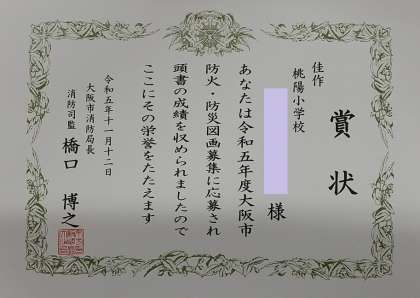 賞状
佳作
桃陽小学校
様
あなたは令和五年度大阪市
防火・防災図画募集に応募され
頭書の成績を収められましたので
ここにその栄誉をたたえます
令和五年十一月十二日
大阪市消防局長
消防司監 橋口 博之